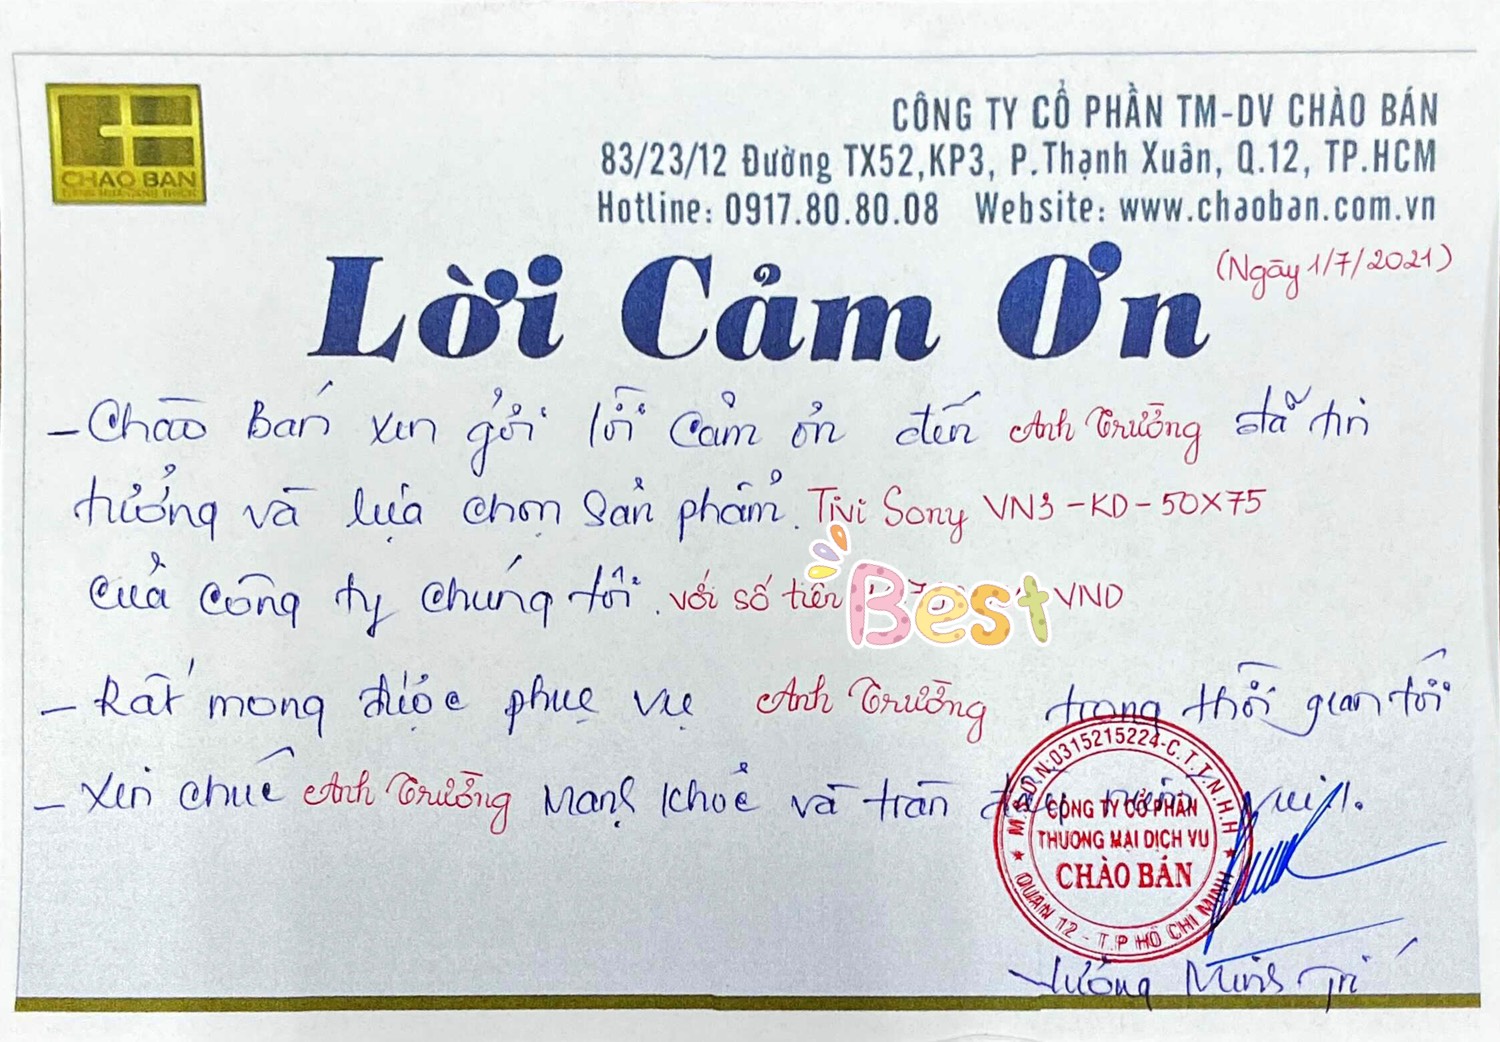 CHAO BAN
CÔNG TY CỔ PHẦN TM-DV CHÀO BÁN
83/23/12 Đường TX52,KP3, P.Thạnh Xuân, Q.12, TP.HCM
Hotline: 0917.80.80.08 Website: www.chaoban.com.vn
Lời Cảm Ơn
(Ngày 1/7/2021)
- Chào Bán xin gởi lời cảm ơn đến Anh Trường đã tin
tưởng và lựa chọn sản phẩm. Tivi Sony VN3-KD-50X75
của công ty chúng tôi. với số tiền VND
Best
- Rất mong được phục vụ Anh Trường trong thời gian tới
- Xin chúc Anh Trường mạnh khoẻ và tràn đầy niềm vui!.
M.S.D.N:0315215224-C.T.T.N.H.H
CÔNG TY CỔ PHẦN
THƯƠNG MẠI DỊCH VỤ
CHÀO BÁN
QUẬN 12 - T.P HỒ CHÍ MINH
Minh Trí